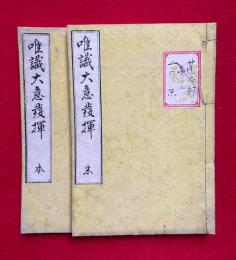 唯識大意發揮
末
唯識大意發揮
本